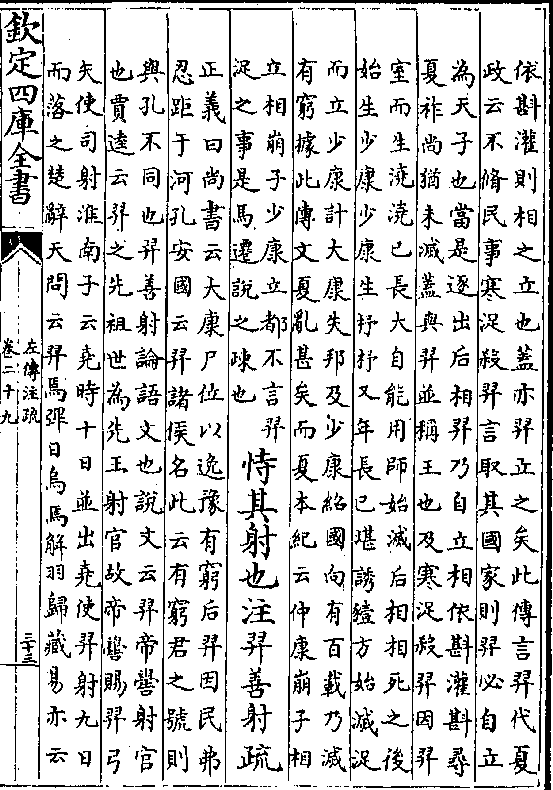 依斟灌則相之立也蓋亦羿立之矣此傳言羿代夏
政云不脩民事寒浞殺羿言取其國家則羿必自立
為天子也當是逐出后相羿乃自立相依斟灌斟尋
夏祚尚猶未滅蓋與羿並稱王也及寒浞殺羿因羿
室而生澆澆已長大自能用師始滅后相相死之後
始生少康少康生杼杼又年長已堪誘豷方始滅浞
而立少康計大康失邦及少康紹國向有百載乃滅
有窮據此傳文夏亂甚矣而夏本紀云仲康崩子相
立相崩子少康立都不言羿
浞之事是馬遷說之疎也
恃其射也注羿善射疏
正義曰尚書云大康尸位以逸豫有窮后羿因民弗
忍距于河孔安國云羿諸侯名此云有窮君之號則
與孔不同也羿善射論語文也說文云羿帝嚳射官
也賈逵云羿之先祖世為先王射官故帝嚳賜羿弓
矢使司射淮南子云堯時十日並出堯使羿射九日
而落之楚辭天問云羿焉彈日烏焉解羽歸藏易亦云
欽定四庫全書
左傳注疏
卷二十九
二十三